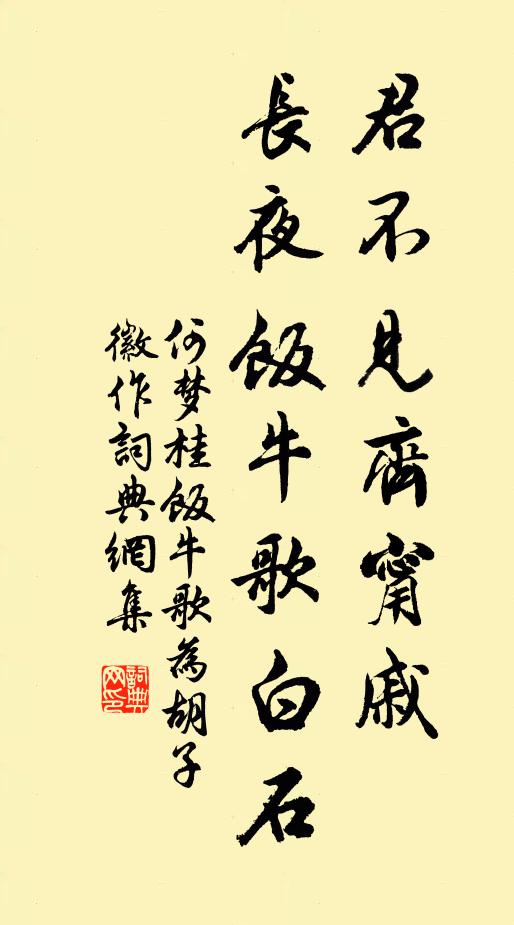 君不見齊甯戚
長夜飯牛歌白石
何梦桂飯牛歌為胡子
徽作詞典網集
詞典
网印